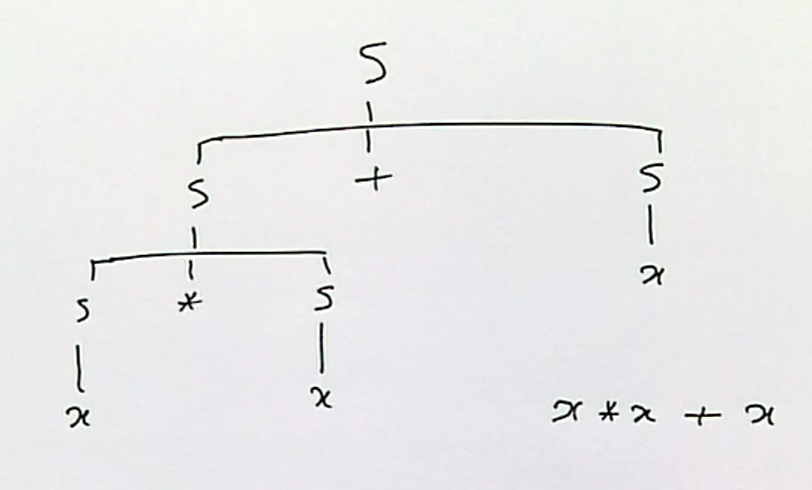 S
S + S
S * S x
x x
x * x + x